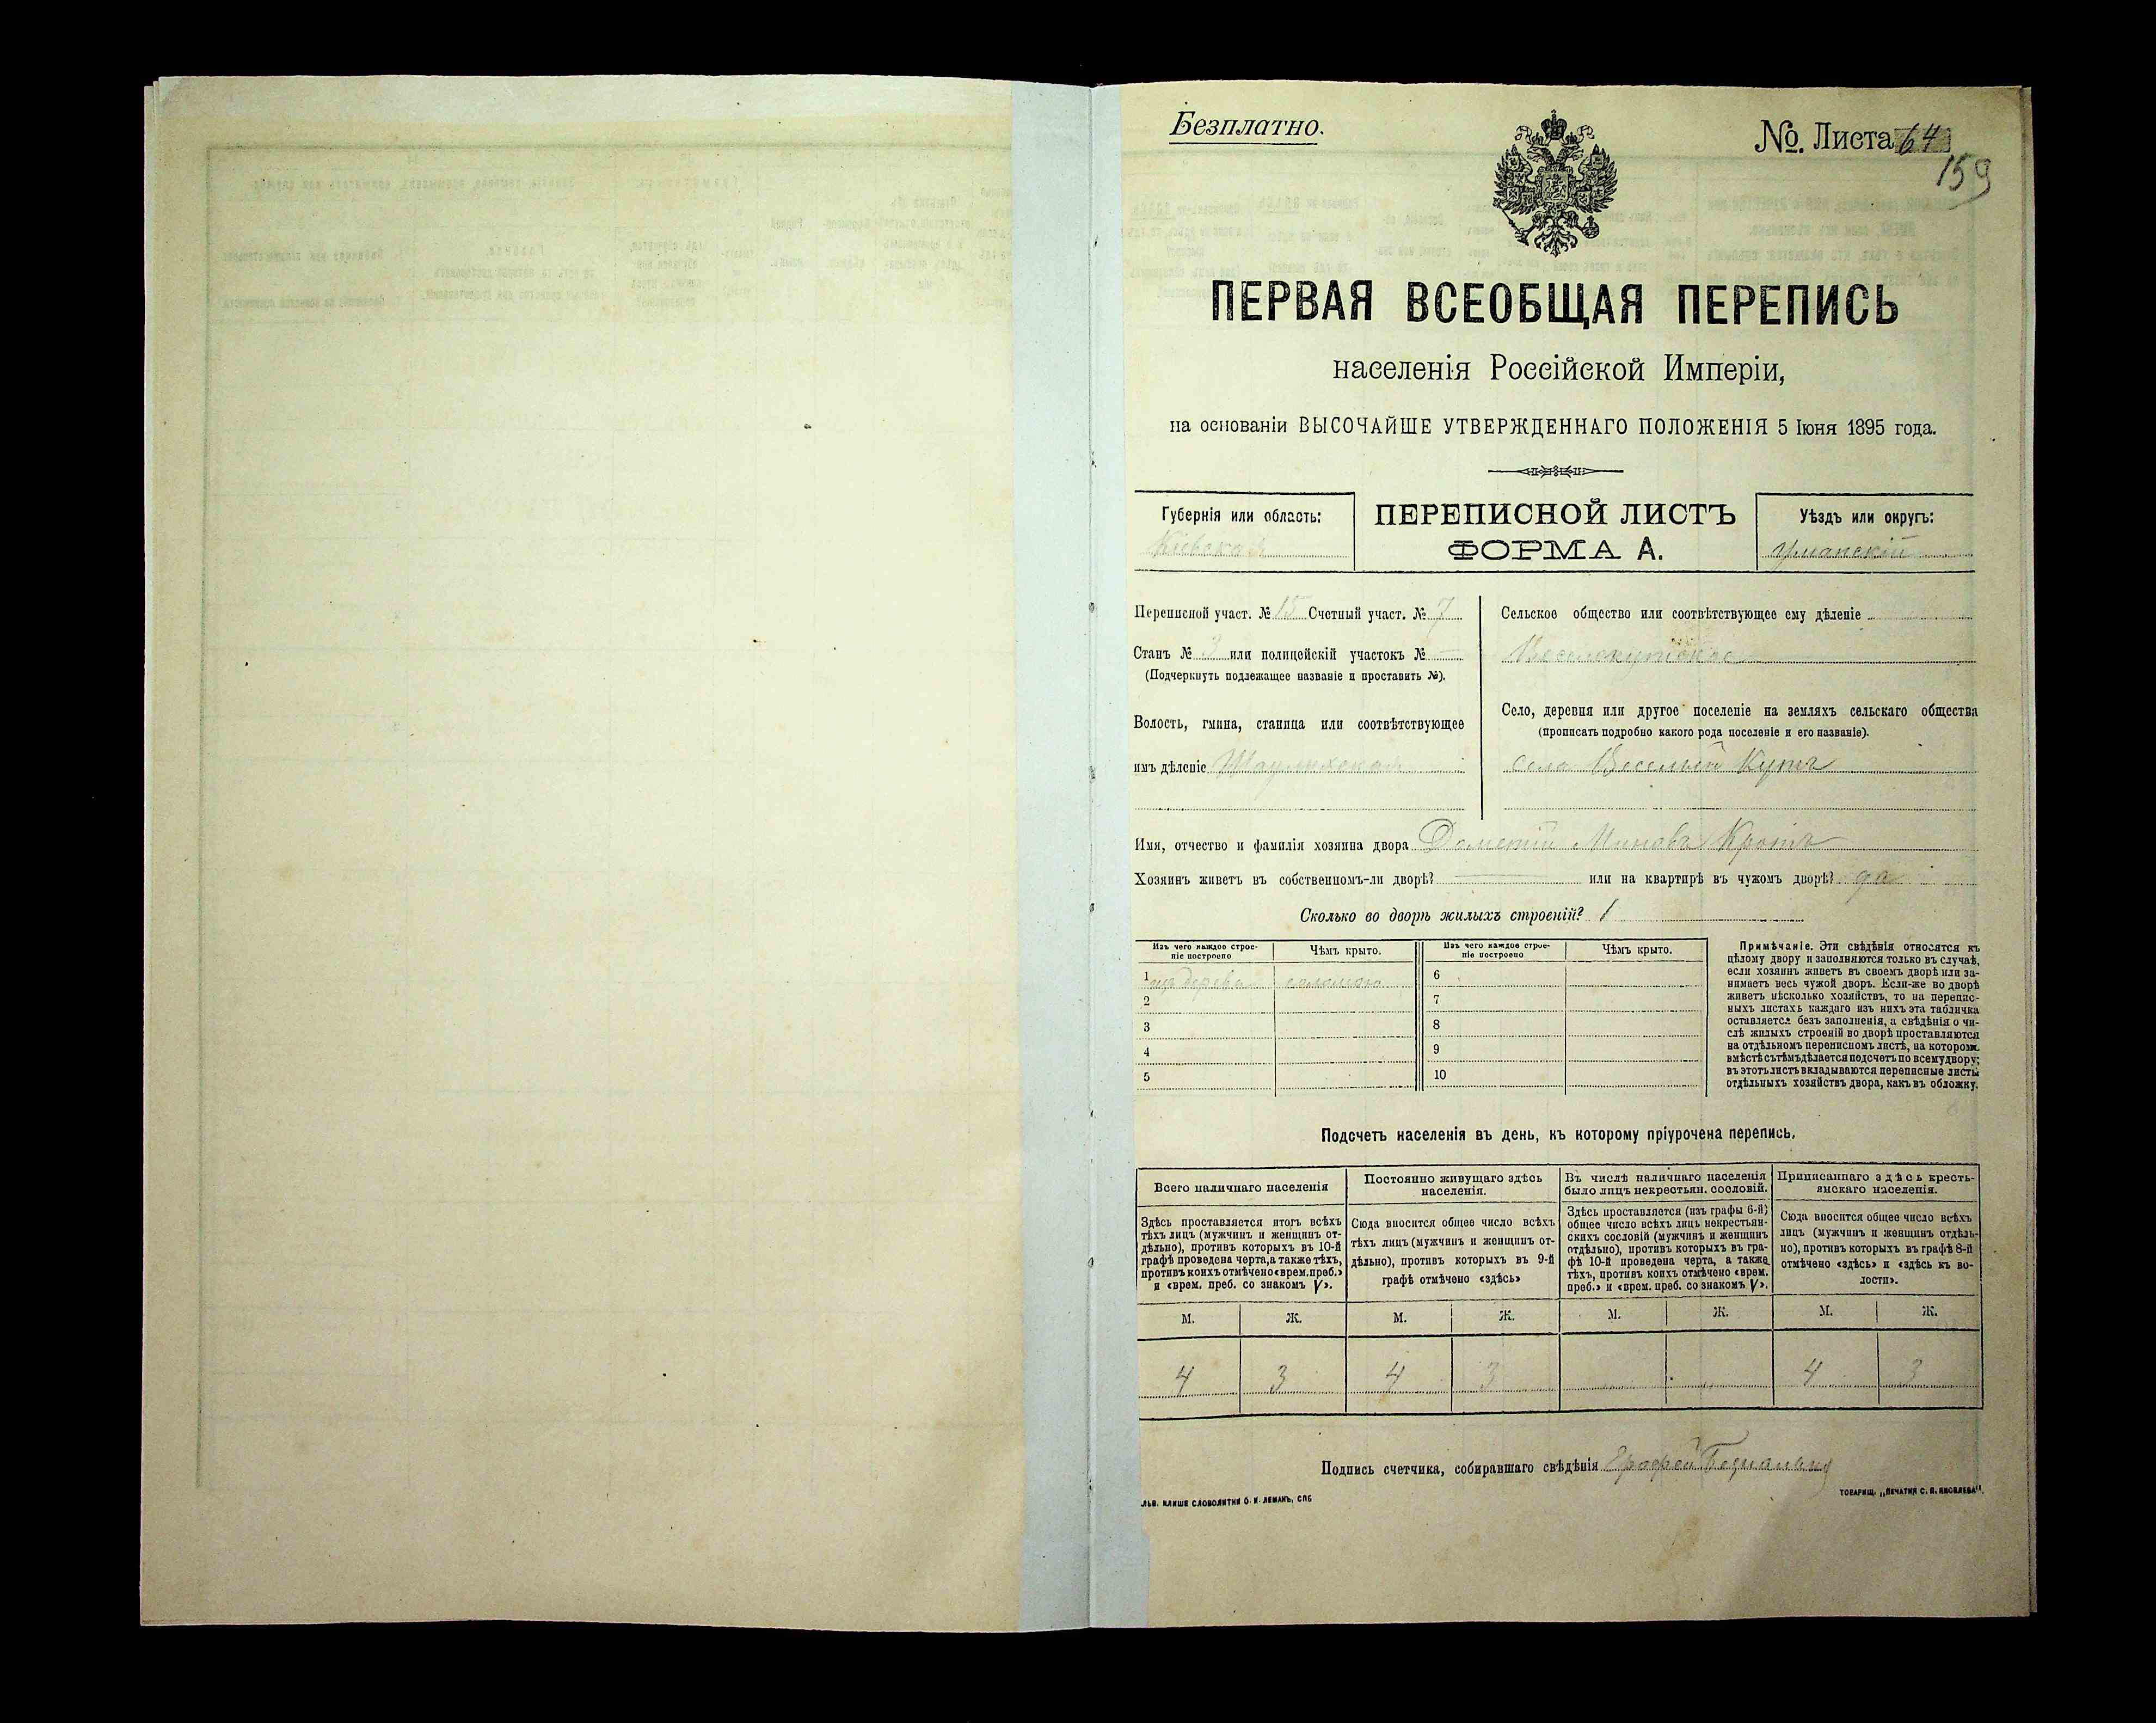 Безплатно.
№. Листа 64
159
ПЕРВАЯ ВСЕОБЩАЯ ПЕРЕПИСЬ
населенія Россійской Имперіи,
на основаніи ВЫСОЧАЙШЕ УТВЕРЖДЕННАГО ПОЛОЖЕНІЯ 5 Іюня 1895 года.
Губернія или область:
Кіевская
ПЕРЕПИСНОЙ ЛИСТЪ
ФОРМА А.
Уѣздъ или округъ:
Уманскій
Переписной участ. № 15 Счетный участ. № 7
Станъ № 3 или полицейскій участокъ № —
(Подчеркнуть подлежащее названіе и проставить №).
Волость, гмина, станица или соотвѣтствующее
имъ дѣленіе
Сельское общество или соотвѣтствующее ему дѣленіе
Веселокутское
Село, деревня или другое поселеніе на земляхъ сельскаго общества
(прописать подробно какого рода поселеніе и его названіе).
село Веселый Кутъ
Имя, отчество и фамилія хозяина двора Дометій Миновъ Кротъ
Хозяинъ живетъ въ собственномъ-ли дворѣ? — или на квартирѣ въ чужомъ дворѣ? да
Сколько во дворѣ жилыхъ строеній? 1
Изъ чего каждое строе-
ніе построено
Чѣмъ крыто.
1 изъ дерева соломою
2
3
4
5
Изъ чего каждое строе-
ніе построено
Чѣмъ крыто.
6
7
8
9
10
Примѣчаніе. Эти свѣдѣнія относятся къ
цѣлому двору и заполняются только въ случаѣ,
если хозяинъ живетъ въ своемъ дворѣ или за-
нимаетъ весь чужой дворъ. Если-же во дворѣ
живетъ нѣсколько хозяйствъ, то на перепис-
ныхъ листахъ каждаго изъ нихъ эта табличка
оставляется безъ заполненія, а свѣдѣнія о чи-
слѣ жилыхъ строеній во дворѣ проставляются
на отдѣльномъ переписномъ листѣ, на которомъ
вмѣстѣ съ тѣмъ дѣлается подсчетъ по всему двору;
въ этотъ листъ вкладываются переписные листы
отдѣльныхъ хозяйствъ двора, какъ въ обложку.
Подсчетъ населенія въ день, къ которому пріурочена перепись.
Всего наличнаго населенія
Здѣсь проставляется итогъ всѣхъ
тѣхъ лицъ (мужчинъ и женщинъ от-
дѣльно), противъ которыхъ въ 10-й
графѣ проведена черта, а также тѣхъ,
противъ коихъ отмѣчено «врем. преб.»
и «врем. преб. со знакомъ V».
Постоянно живущаго здѣсь
населенія.
Сюда вносится общее число всѣхъ
тѣхъ лицъ (мужчинъ и женщинъ от-
дѣльно), противъ которыхъ въ 9-й
графѣ отмѣчено «здѣсь»
Въ числѣ наличнаго населенія
было лицъ некрестьян. сословій.
Здѣсь проставляется (изъ графы 6-й)
общее число всѣхъ лицъ некрестьян-
скихъ сословій (мужчинъ и женщинъ
отдѣльно), противъ которыхъ въ гра-
фѣ 10-й проведена черта, а также
тѣхъ, противъ коихъ отмѣчено «врем.
преб.» и «врем. преб. со знакомъ V».
Приписаннаго здѣсь кресть-
янскаго населенія.
Сюда вносится общее число всѣхъ
лицъ (мужчинъ и женщинъ отдѣль-
но), противъ которыхъ въ графѣ 8-й
отмѣчено «здѣсь» и «здѣсь въ во-
лости».
М. Ж. М. Ж. М. Ж. М. Ж.
4 3 4 3 4 3
Подпись счетчика, собиравшаго свѣдѣнія Ерофей
ТОВАРИЩ. „ПЕЧАТНЯ С. П. ЯКОВЛЕВА".